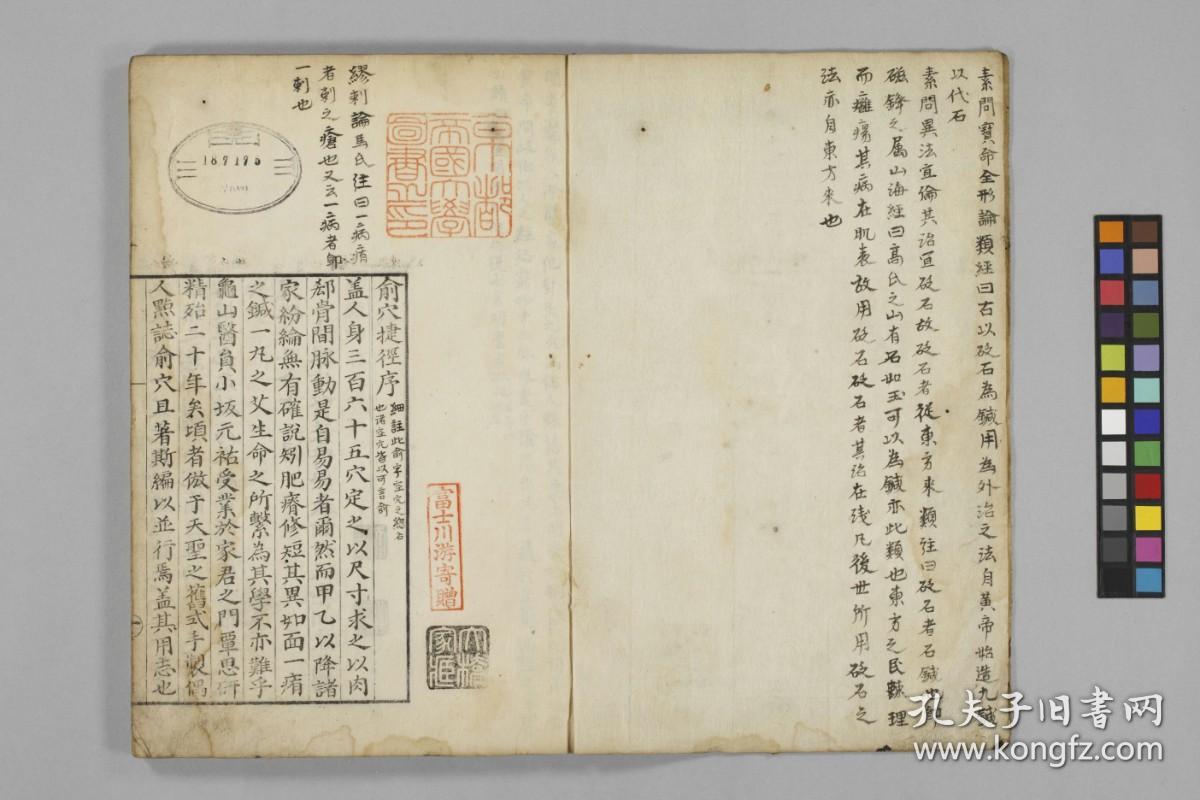 素問寶命全形論類經曰古以砭石為鍼用為外治之法自黃帝始造九鍼
以代石
素問異法宜論其治宜砭石故砭石者從東方來類註曰砭石者石鍼也即
磁鋒之属山海經曰高氏之山有石如玉可以為鍼亦此類也東方之民踈理
而癰瘍其病在肌表故用砭石砭石者其治在浅凡後世所用砭石之
法亦自東方來也
繆刺論馬氏注曰一病痏
者刺之瘡也又云一病者即
一刺也
京都
帝國大學
圖書之印
187195
俞穴捷徑序
細註此俞字空穴之總名
也諸空穴皆以可言俞
蓋人身三百六十五穴定之以尺寸求之以肉
郄骨間脉動是自易易者爾然而甲乙以降諸
家紛綸無有確說矧肥瘠修短其異如面一痏
之鍼一九之艾生命之所繫為其學不亦難乎
龜山醫員小坂元祐受業於家君之門覃思研
精殆二十年矣頃者倣于天聖之舊式手製偶
人點誌俞穴且著斯編以並行焉蓋其用志也
一
富士川游寄贈
孔夫子旧书网
www.kongfz.com